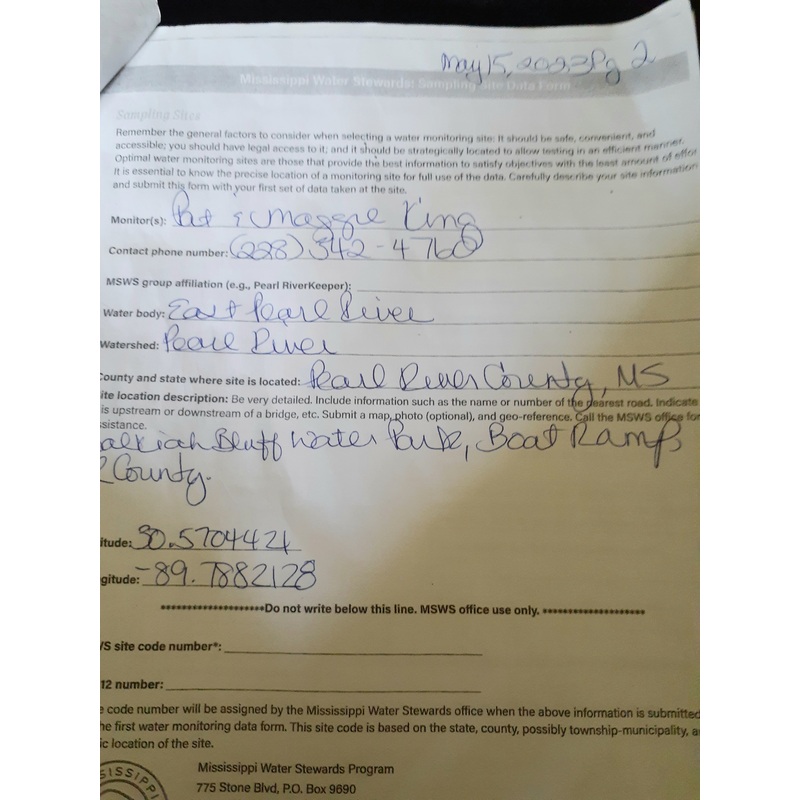 May 15, 2023 Pg 2
Mississippi Water Stewards: Sampling Site Data Form
Sampling Sites
Remember the general factors to consider when selecting a water monitoring site: It should be safe, convenient, and
accessible; you should have legal access to it; and it should be strategically located to allow testing in an efficient manner.
Optimal water monitoring sites are those that provide the best information to satisfy objectives with the least amount of effor
It is essential to know the precise location of a monitoring site for full use of the data. Carefully describe your site information
and submit this form with your first set of data taken at the site.
Monitor(s): Pat & Maggie King
Contact phone number: (228) 342-4760
MSWS group affiliation (e.g., Pearl RiverKeeper):
Water body: East Pearl River
Watershed: Pearl River
County and state where site is located: Pearl River County, MS
ite location description: Be very detailed. Include information such as the name or number of the nearest road. Indicate
is upstream or downstream of a bridge, etc. Submit a map, photo (optional), and geo-reference. Call the MSWS office for
ssistance.
alkiah Bluff Water Park, Boat Ramp,
County.
itude: 30.5704424
gitude: -89.7882128
Do not write below this line. MSWS office use only.
VS site code number*:
12 number:
e code number will be assigned by the Mississippi Water Stewards office when the above information is submitted
he first water monitoring data form. This site code is based on the state, county, possibly township-municipality, a
ic location of the site.
SISSIPPI
Mississippi Water Stewards Program
775 Stone Blvd, P.O. Box 9690